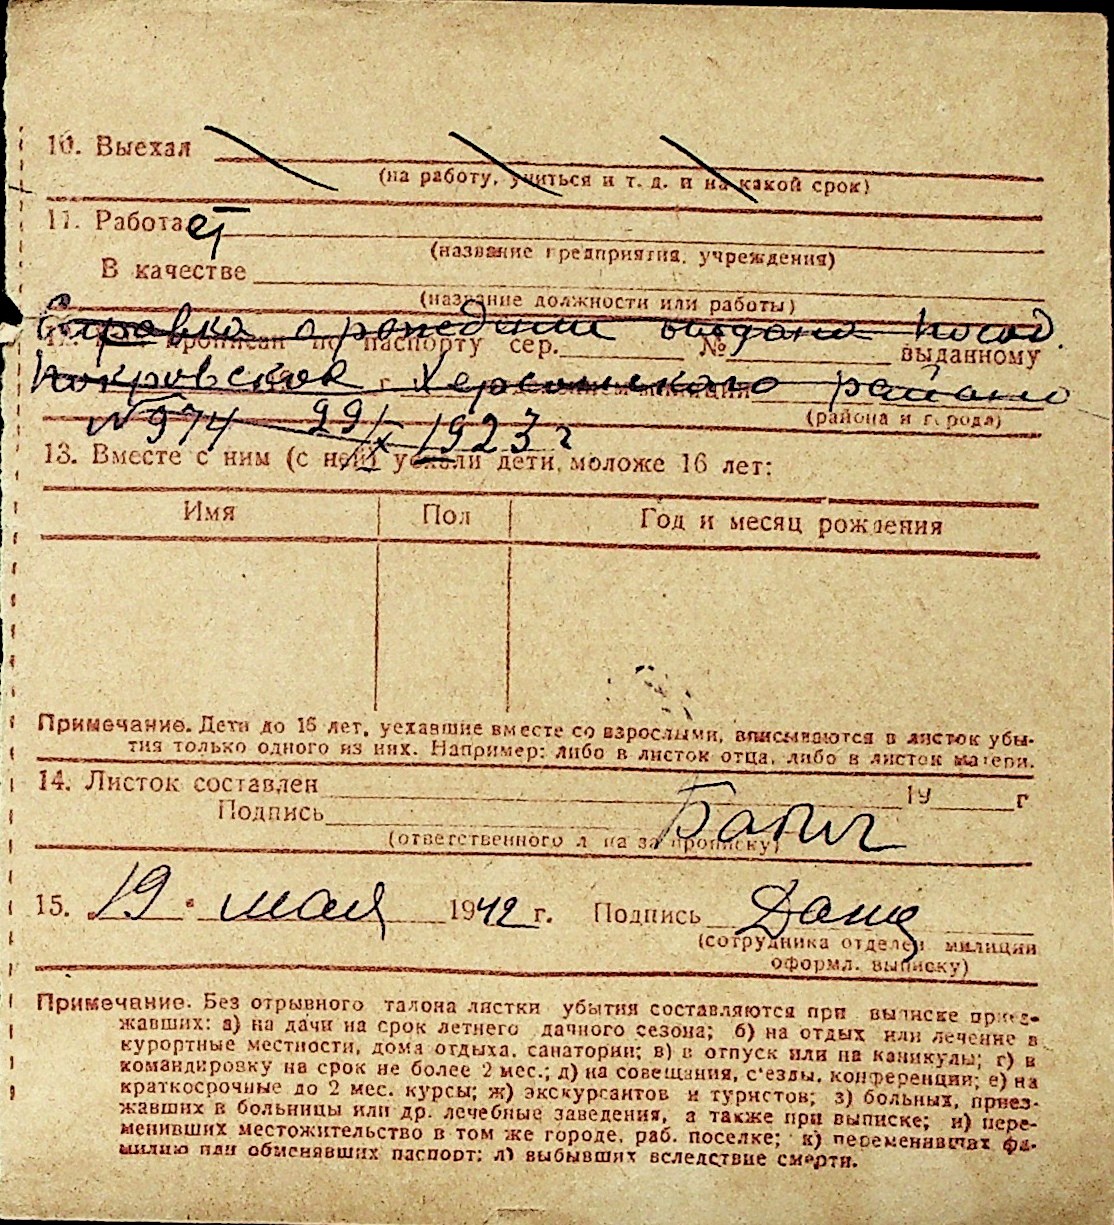 10. Выехал
(на работу, учиться и т. д. и на какой срок)
11. Работает
(название предприятия, учреждения)
В качестве
(название должности или работы)
Справка о рождении выдана посад.
прописан по паспорту сер. № выданному
Покровское г. Херсонского района
(района и города)
№ 974 29/X 1923 г
13. Вместе с ним (с ней) уехали дети моложе 16 лет:
Имя Пол Год и месяц рождения
Примечание. Дети до 16 лет, уехавшие вместе со взрослыми, вписываются в листок убы-
тия только одного из них. Например: либо в листок отца, либо в листок матери.
14. Листок составлен 19 г
Подпись
(ответственного л на за прописку)
15. 19 • мая 1942 г. Подпись
(сотрудника отделен милиции
оформл. выписку)
Примечание. Без отрывного талона листки убытия составляются при выписке приез-
жавших: а) на дачи на срок летнего дачного сезона; б) на отдых или лечение в
курортные местности, дома отдыха, санатории; в) в отпуск или на каникулы; г) в
командировку на срок не более 2 мес.; д) на совещания, с'езды, конференции; е) на
краткосрочные до 2 мес. курсы; ж) экскурсантов и туристов; з) больных, приез-
жавших в больницы или др. лечебные заведения, а также при выписке; и) пере-
менивших местожительство в том же городе, раб. поселке; к) переменивших фа-
милию или обменявших паспорт; л) выбывших вследствие смерти.